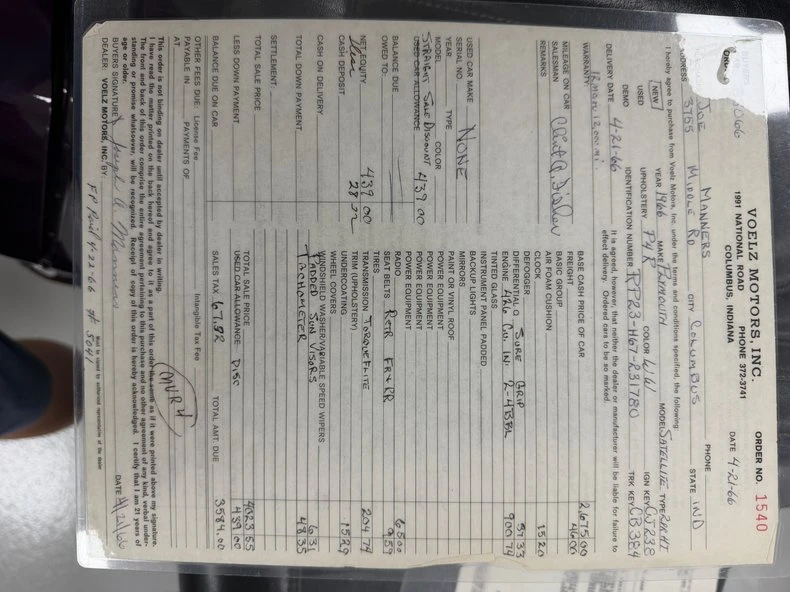 VOELZ MOTORS, INC.
1991 NATIONAL ROAD PHONE 372-3741
COLUMBUS, INDIANA
ORDER NO. 1540
DATE 4-21-66
JOE MANNERS PHONE
ADDRESS 3755 MIDDLE RD CITY COLUMBUS STATE IND
I hereby agree to purchase from Voelz Motors, Inc. under the terms and conditions specified, the following:
NEW YEAR 1966 MAKE PLYMOUTH MODEL SATELLITE TYPE 2DR HT
USED UPHOLSTERY P4R COLOR W/W IGN KEY CJ238
DEMO IDENTIFICATION NUMBER RP23-H67-231780 TRK KEY CB384
DELIVERY DATE 4-21-66 It is agreed, however, that neither the dealer or manufacturer will be liable for failure to
effect delivery. Ordered cars to be so marked.
WARRANTY 12 mo or 12,000 mi.
MILEAGE ON CAR
SALESMAN
REMARKS
USED CAR MAKE NONE
SERIAL NO.
YEAR TYPE
MODEL COLOR
USED CAR ALLOWANCE
STRAIGHT SALE DISCOUNT 439 00
BALANCE DUE
OWED TO:
NET EQUITY 439 00
CASH DEPOSIT
CASH ON DELIVERY
TOTAL DOWN PAYMENT
SETTLEMENT
TOTAL SALE PRICE
LESS DOWN PAYMENT
BALANCE DUE ON CAR
BASE CASH PRICE OF CAR 2675.00
FREIGHT
BASIC GROUP
AIR FOAM CUSHION
CLOCK 15 20
DEFOGGER
DIFFERENTIAL SURE GRIP 37 33
ENGINE 426 CU. IN. 2-4BBL 900 74
TINTED GLASS
INSTRUMENT PANEL PADDED
BACKUP LIGHTS
MIRRORS
PAINT OR VINYL ROOF
POWER EQUIPMENT
POWER EQUIPMENT
POWER EQUIPMENT
POWER EQUIPMENT
RADIO
SEAT BELTS
TIRES
TRANSMISSION TORQUEFLITE 204 74
TRIM (UPHOLSTERY)
UNDERCOATING 15 29
WHEEL COVERS
WINDSHIELD WASHER/VARIABLE SPEED WIPERS
PADDED SUN VISORS 6 31
TACHOMETER 48 35
TOTAL SALE PRICE 4023 55
USED CAR ALLOWANCE DISC 439.00
SALES TAX TOTAL AMT. DUE 3584.00
OTHER FEES DUE: License Fee Intangible Tax Fee
PAYABLE IN PAYMENTS OF
AT
This order is not binding on dealer until accepted by dealer in writing.
I have read the matter printed on the back hereof and agree to it as a part of this order the same as if it were printed above my signature.
The front and back of this order comprise the entire agreement pertaining to this purchase and no other agreement of any kind, verbal under-
standing or promise whatsoever, will be recognized. Receipt of copy of this order is hereby acknowledged. I certify that I am 21 years of
age or older.
BUYERS SIGNATURE Joseph A. Manners DATE 4/21/66
DEALER VOELZ MOTORS, INC. BY
Must be signed by authorized representative of the dealer